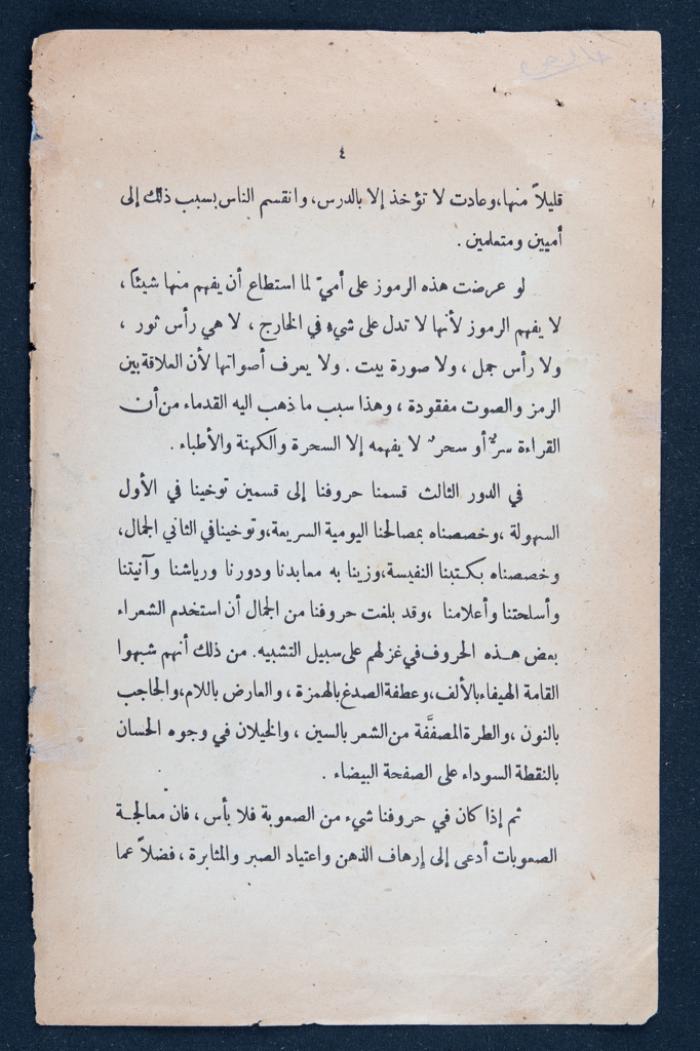 ٤
قليلاً منها، وعادت لا تؤخذ إلا بالدرس، وانقسم الناس بسبب ذلك إلى
أميين ومتعلمين .
لو عرضت هذه الرموز على أميّ لما استطاع أن يفهم منها شيئاً ،
لا يفهم الرموز لأنها لا تدل على شيء في الخارج ، لا هي رأس ثور ،
ولا رأس جمل ، ولا صورة بيت . ولا يعرف أصواتها لأن العلاقة بين
الرمز والصوت مفقودة ، وهذا سبب ما ذهب اليه القدماء من أن
القراءة سرٌّ أو سحرٌ لا يفهمه إلا السحرة والكهنة والأطباء .
في الدور الثالث قسمنا حروفنا إلى قسمين توخينا في الأول
السهولة ، وخصصناه بمصالحنا اليومية السريعة، وتوخينا في الثاني الجمال،
وخصصناه بكتبنا النفيسة، وزينا به معابدنا ودورنا ورياشنا وآنيتنا
وأسلحتنا وأعلامنا ، وقد بلغت حروفنا من الجمال أن استخدم الشعراء
بعض هذه الحروف في غزلهم على سبيل التشبيه. من ذلك أنهم شبهوا
القامة الهيفاء بالألف، وعطفة الصدغ بالهمزة ، والعارض باللام، والحاجب
بالنون ، والطرة المصفَّفة من الشعر بالسين ، والخيلان في وجوه الحسان
بالنقطة السوداء على الصفحة البيضاء .
ثم إذا كان في حروفنا شيء من الصعوبة فلا بأس ، فان معالجة
الصعوبات أدعى إلى إرهاف الذهن واعتياد الصبر والمثابرة ، فضلاً عما